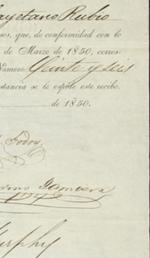 Cayetano Rubio
nos, que, de conformidad con lo
de Marzo de 1850, corres-
Número Veinte y seis
stancia se le expide este recibo.
de 1850.
Murphy